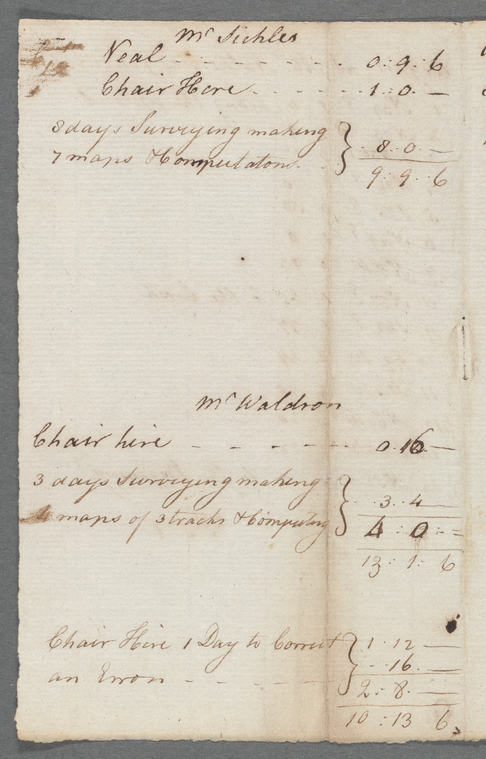 Mr Sickles
Neal - - - - - - - 0 : 9 : 6
Chair Hire - - - - - 1 : 0 : —
8 days Surveying making
7 maps & Computations } 8 : 0 : —
9 : 9 : 6
Mr Waldron
Chair hire - - - - - - 0 . 16 —
3 days Surveying making
maps of 3 tracts & Computing } 3 . 4 —
4 : 0 : =
13 : 1 : 6
Chair Hire 1 Day to Correct } 1 . 12 —
an Error - - - - - 16 . —
2 : 8 . —
10 : 13 6